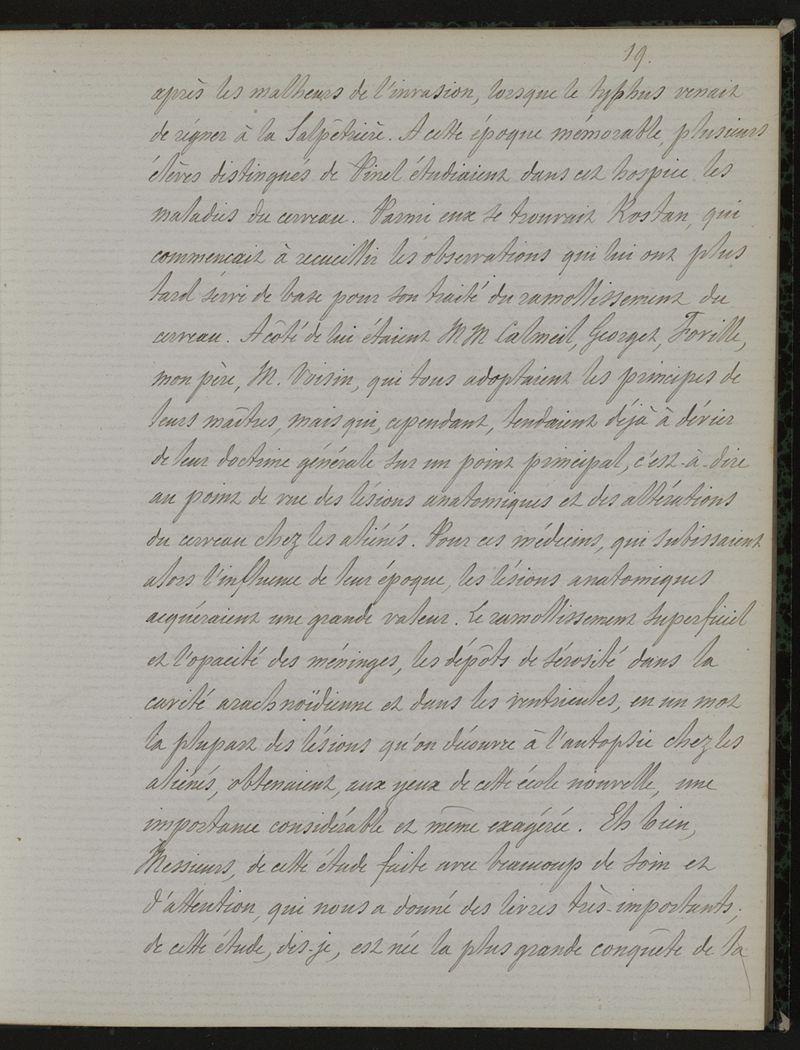 19.
après les malheurs de l'invasion, lorsque le typhus venait
de règner à la Salpêtrière. A cette époque mémorable, plusieurs
élèves distingués de Pinel étudiaient dans cet hospice les
maladies du cerveau. Parmi eux se trouvait Rostan, qui
commençait à recueillir les observations qui lui ont plus
tard servi de base pour son traité du ramollissement du
cerveau. A côté de lui étaient MM Calmeil, Georget, Foville,
mon père, M. Voisin, qui tous adoptaient les principes de
leurs maîtres, mais qui, cependant, tendaient déjà à dévier
de leur doctrine générale sur un point principal, c'est-à-dire
au point de vue des lésions anatomiques et des altérations
du cerveau chez les aliénés. Pour ces médecins, qui subissaient
alors l'influence de leur époque, les lésions anatomiques
acquéraient une grande valeur. Le ramollissement superficiel
et l'opacité des méninges, les dépôts de sérosité dans la
cavité arachnoïdienne et dans les ventricules, en un mot
la plupart des lésions qu'on découvre à l'autopsie chez les
aliénés, obtenaient, aux yeux de cette école nouvelle, une
importance considérable et même exagérée. Eh bien,
Messieurs, de cette étude faite avec beaucoup de soin et
d'attention, qui nous a donné des livres très-importants,
de cette étude, dis-je, est née la plus grande conquête de la